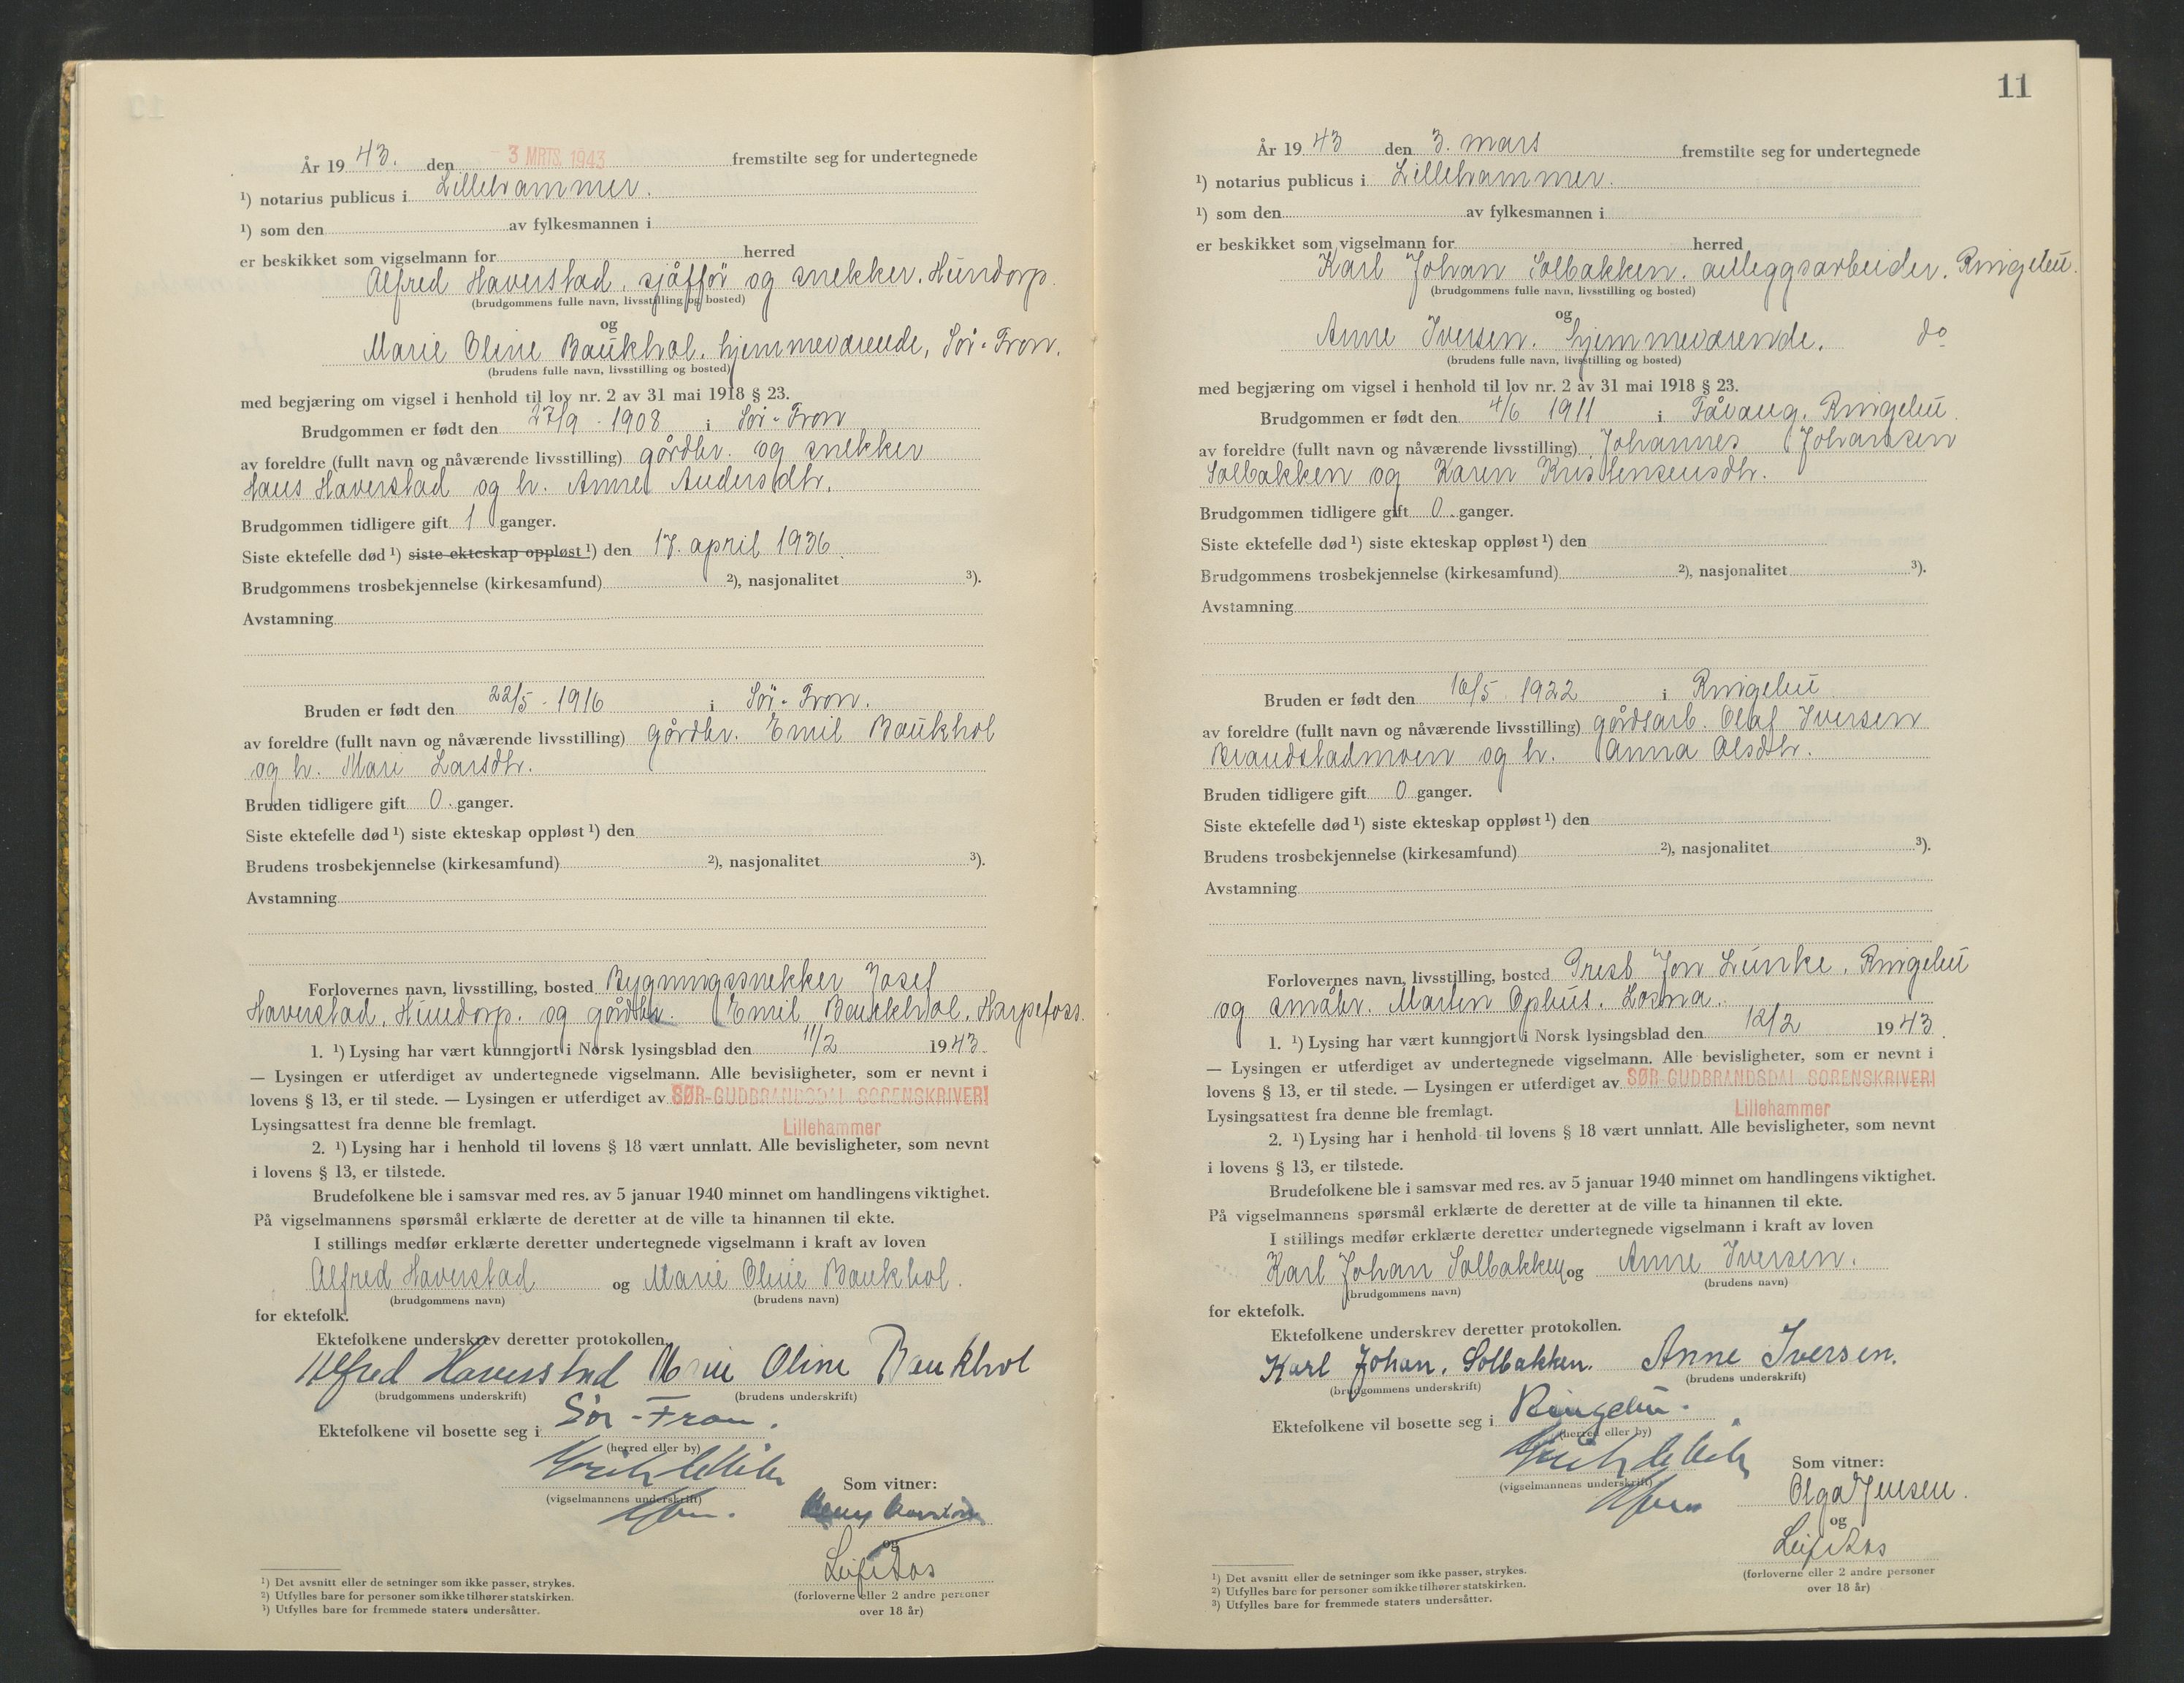 År 19 43. den - 3 MRTS. 1943 fremstilte seg for undertegnede
¹) notarius publicus i Lillehammer.
¹) som den av fylkesmannen i
er beskikket som vigselmann for herred
Alfred Haverstad, sjåffør og snekker. Hundorp.
(brudgommens fulle navn, livsstilling og bosted)
og
Marie Oline Baukhol. hjemmeværende, Sør-Fron.
(brudens fulle navn, livsstilling og bosted)
med begjæring om vigsel i henhold til lov nr. 2 av 31 mai 1918 § 23.
Brudgommen er født den 27/9 - 1908 i Sør-Fron
av foreldre (fullt navn og nåværende livsstilling) gårdbr. og snekker
Hans Haverstad og h. Anne Andersdtr.
Brudgommen tidligere gift 1 ganger.
Siste ektefelle død ¹) siste ekteskap oppløst ¹) den 17. april 1936.
Brudgommens trosbekjennelse (kirkesamfund) ²), nasjonalitet ³).
Avstamning
Bruden er født den 22/5 - 1916 i Sør-Fron.
av foreldre (fullt navn og nåværende livsstilling) gårdbr. Emil Baukhol
og h. Mari Larsdtr.
Bruden tidligere gift 0. ganger.
Siste ektefelle død ¹) siste ekteskap oppløst ¹) den
Brudens trosbekjennelse (kirkesamfund) ²), nasjonalitet ³).
Avstamning
Forlovernes navn, livsstilling, bosted Bygningssnekker Josef
Haverstad, Hundorp. og gårdbr. Emil Baukhol, Harpefoss.
1. ¹) Lysing har vært kunngjort i Norsk lysingsblad den 11/2 1943
— Lysingen er utferdiget av undertegnede vigselmann. Alle bevisligheter, som er nevnt i
lovens § 13, er til stede. — Lysingen er utferdiget av SØR-GUDBRANDSDAL SORENSKRIVERI
Lysingsattest fra denne ble fremlagt. Lillehammer
2. ¹) Lysing har i henhold til lovens § 18 vært unnlatt. Alle bevisligheter, som nevnt
i lovens § 13, er tilstede.
Brudefolkene ble i samsvar med res. av 5 januar 1940 minnet om handlingens viktighet.
På vigselmannens spørsmål erklærte de deretter at de ville ta hinannen til ekte.
I stillings medfør erklærte deretter undertegnede vigselmann i kraft av loven
Alfred Haverstad og Marie Oline Baukhol.
(brudgommens navn) (brudens navn)
for ektefolk.
Ektefolkene underskrev deretter protokollen.
Alfred Haverstad Marie Oline Baukhol
(brudgommens underskrift) (brudens underskrift)
Ektefolkene vil bosette seg i Sør-Fron.
(herred eller by)
(vigselmannens underskrift)
Som vitner:
og
Leif Aas
(forloverne eller 2 andre personer
over 18 år)
¹) Det avsnitt eller de setninger som ikke passer, strykes.
²) Utfylles bare for personer som ikke tilhører statskirken.
³) Utfylles bare for fremmede staters undersåtter.
11
År 19 43 den 3. mars fremstilte seg for undertegnede
¹) notarius publicus i Lillehammer.
¹) som den av fylkesmannen i
er beskikket som vigselmann for herred
Karl Johan Solbakken. anleggsarbeider. Ringebu.
(brudgommens fulle navn, livsstilling og bosted)
og
Anne Iversen. hjemmeværende. do
(brudens fulle navn, livsstilling og bosted)
med begjæring om vigsel i henhold til lov nr. 2 av 31 mai 1918 § 23.
Brudgommen er født den 4/6 1911 i Fåvang, Ringebu.
av foreldre (fullt navn og nåværende livsstilling) Johannes Johansen
Solbakken og Karen Kristensensdtr.
Brudgommen tidligere gift 0. ganger.
Siste ektefelle død ¹) siste ekteskap oppløst ¹) den
Brudgommens trosbekjennelse (kirkesamfund) ²), nasjonalitet ³).
Avstamning
Bruden er født den 16/5 1922 i Ringebu
av foreldre (fullt navn og nåværende livsstilling) gårdsarb. Olaf Iversen
Brandstadmoen og h. Anna Olsdtr.
Bruden tidligere gift 0 ganger.
Siste ektefelle død ¹) siste ekteskap oppløst ¹) den
Brudens trosbekjennelse (kirkesamfund) ²), nasjonalitet ³).
Avstamning
Forlovernes navn, livsstilling, bosted Jon Lunke, Ringebu
og småbr. Martin Ophus. Losna.
1. ¹) Lysing har vært kunngjort i Norsk lysingsblad den 12/2 1943
— Lysingen er utferdiget av undertegnede vigselmann. Alle bevisligheter, som er nevnt i
lovens § 13, er til stede. — Lysingen er utferdiget av SØR-GUDBRANDSDAL SORENSKRIVERI
Lysingsattest fra denne ble fremlagt. Lillehammer
2. ¹) Lysing har i henhold til lovens § 18 vært unnlatt. Alle bevisligheter, som nevnt
i lovens § 13, er tilstede.
Brudefolkene ble i samsvar med res. av 5 januar 1940 minnet om handlingens viktighet.
På vigselmannens spørsmål erklærte de deretter at de ville ta hinannen til ekte.
I stillings medfør erklærte deretter undertegnede vigselmann i kraft av loven
Karl Johan Solbakken og Anne Iversen.
(brudgommens navn) (brudens navn)
for ektefolk.
Ektefolkene underskrev deretter protokollen.
Karl Johan. Solbakken. Anne Iversen.
(brudgommens underskrift) (brudens underskrift)
Ektefolkene vil bosette seg i Ringebu.
(herred eller by)
(vigselmannens underskrift)
Som vitner:
Olga Jensen.
og
Leif Aas
(forloverne eller 2 andre personer
over 18 år)
¹) Det avsnitt eller de setninger som ikke passer, strykes.
²) Utfylles bare for personer som ikke tilhører statskirken.
³) Utfylles bare for fremmede staters undersåtter.